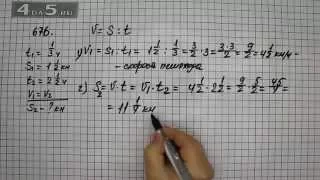 4 ДА 5.RU
676. V = S : t
t₁ = 1/3 ч
S₁ = 1 1/2 км
t₂ = 2 1/2 ч
V₁ = V₂
S₂ = ? км
1) V₁ = S₁ : t₁ = 1 1/2 : 1/3 = 3/2 · 3 = 3·3/2 = 9/2 = 4 1/2 км/ч –
– скорость пешехода
2) S₂ = V · t = V₁ · t₂ = 4 1/2 · 2 1/2 = 9/2 · 5/2 = 45/4 =
= 11 1/4 км